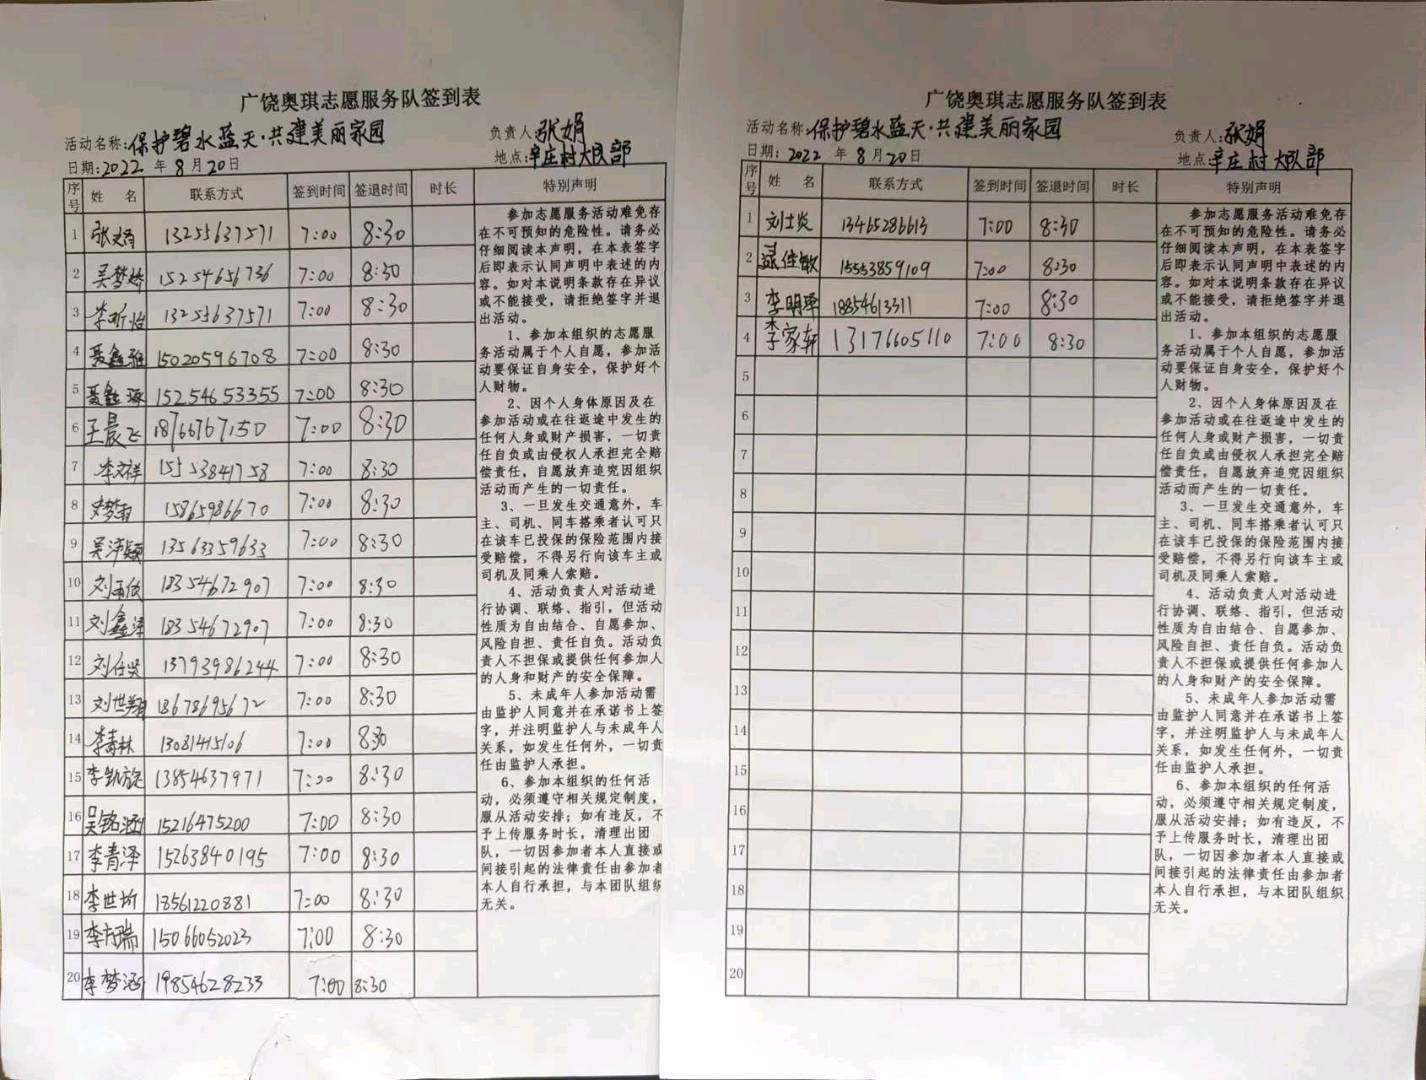 广饶奥琪志愿服务队签到表
活动名称:保护碧水蓝天·共建美丽家园 负责人:张娟
日期:2022 年 8 月 20 日 地点:辛庄村大队部
序号 姓 名 联系方式 签到时间 签退时间 时长 特别声明
1 张娟 13255637571 7:00 8:30
2 吴梦娇 15254656736 7:00 8:30
3 李昕怡 13255637571 7:00 8:30
4 聂鑫雅 15020596708 7:00 8:30
5 聂鑫琢 15254653355 7:00 8:30
6 王晨飞 18766767150 7:00 8:30
7 李文祥 15553841758 7:00 8:30
8 15865986670 7:00 8:30
9 13563359633 7:00 8:30
10 18354672907 7:00 8:30
11 刘鑫泽 18354672907 7:00 8:30
12 13793986244 7:00 8:30
13 刘世翔 18678695672 7:00 8:30
14 李青林 13081415106 7:00 830
15 李凯旋 13854637971 7:00 8:30
16 吴铭涵 15216475200 7:00 8:30
17 李青泽 15263840195 7:00 8:30
18 李世昕 18561220881 7:00 8:30
19 李方瑞 15066052023 7:00 8:30
20 李梦涵 19854628233 7:00 8:30
参加志愿服务活动难免存
在不可预知的危险性。请务必
仔细阅读本声明，在本表签字
后即表示认同声明中表述的内
容。如对本说明条款存在异议
或不能接受，请拒绝签字并退
出活动。
1、参加本组织的志愿服
务活动属于个人自愿，参加活
动要保证自身安全，保护好个
人财物。
2、因个人身体原因及在
参加活动或在往返途中发生的
任何人身或财产损害，一切责
任自负或由侵权人承担完全赔
偿责任，自愿放弃追究因组织
活动而产生的一切责任。
3、一旦发生交通意外，车
主、司机、同车搭乘者认可只
在该车已投保的保险范围内接
受赔偿，不得另行向该车主或
司机及同乘人索赔。
4、活动负责人对活动进
行协调、联络、指引，但活动
性质为自由结合、自愿参加、
风险自担、责任自负。活动负
责人不担保或提供任何参加人
的人身和财产的安全保障。
5、未成年人参加活动需
由监护人同意并在承诺书上签
字，并注明监护人与未成年人
关系，如发生任何外，一切责
任由监护人承担。
6、参加本组织的任何活
动，必须遵守相关规定制度，
服从活动安排；如有违反，不
予上传服务时长，清理出团
队，一切因参加者本人直接或
间接引起的法律责任由参加者
本人自行承担，与本团队组织
无关。
广饶奥琪志愿服务队签到表
活动名称:保护碧水蓝天·共建美丽家园 负责人:张娟
日期:2022 年 8 月 20 日 地点:辛庄村大队部
序号 姓 名 联系方式 签到时间 签退时间 时长 特别声明
1 刘士炎 13465286613 7:00 8:30
2 15553859109 7:00 8:30
3 李明泽 18854613311 7:00 8:30
4 李家轩 13176605110 7:00 8:30
5
6
7
8
9
10
11
12
13
14
15
16
17
18
19
20
参加志愿服务活动难免存
在不可预知的危险性。请务必
仔细阅读本声明，在本表签字
后即表示认同声明中表述的内
容。如对本说明条款存在异议
或不能接受，请拒绝签字并退
出活动。
1、参加本组织的志愿服
务活动属于个人自愿，参加活
动要保证自身安全，保护好个
人财物。
2、因个人身体原因及在
参加活动或在往返途中发生的
任何人身或财产损害，一切责
任自负或由侵权人承担完全赔
偿责任，自愿放弃追究因组织
活动而产生的一切责任。
3、一旦发生交通意外，车
主、司机、同车搭乘者认可只
在该车已投保的保险范围内接
受赔偿，不得另行向该车主或
司机及同乘人索赔。
4、活动负责人对活动进
行协调、联络、指引，但活动
性质为自由结合、自愿参加、
风险自担、责任自负。活动负
责人不担保或提供任何参加人
的人身和财产的安全保障。
5、未成年人参加活动需
由监护人同意并在承诺书上签
字，并注明监护人与未成年人
关系，如发生任何外，一切责
任由监护人承担。
6、参加本组织的任何活
动，必须遵守相关规定制度，
服从活动安排；如有违反，不
予上传服务时长，清理出团
队，一切因参加者本人直接或
间接引起的法律责任由参加者
本人自行承担，与本团队组织
无关。